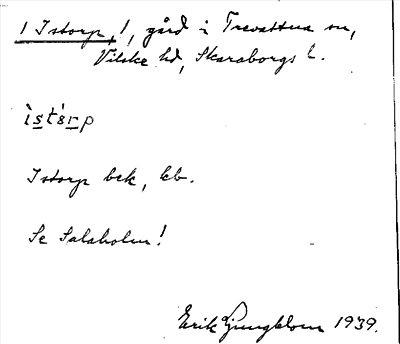 1 Istorp, !, gård i Trevattna sn,
Vilske hd, Skaraborgs l.
ìstórp
Istorp bek, kb.
Se Salaholm!
Erik Ljungblom 1939.